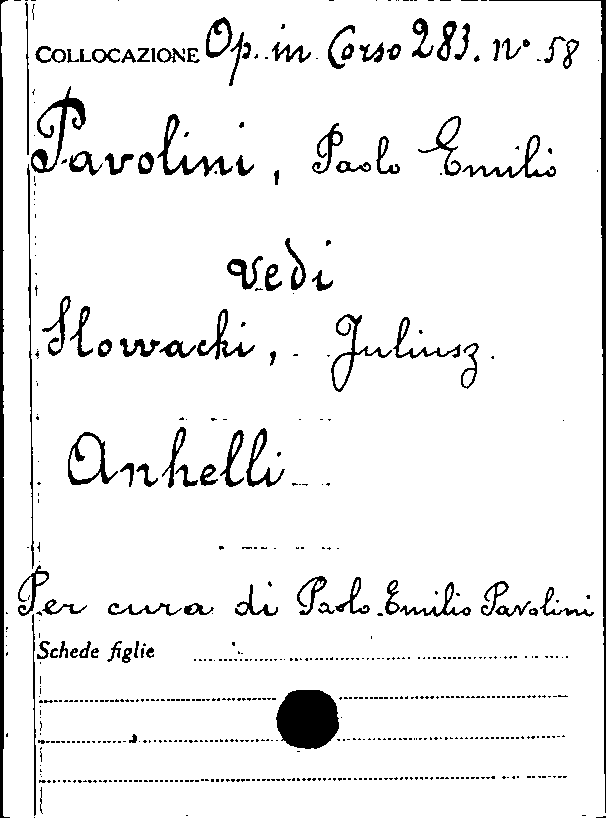 COLLOCAZIONE Op. in Corso 283. n° 58
Pavolini, Paolo Emilio
vedi
Slowacki, Juliusz.
Anhelli
Per cura di Paolo Emilio Pavolini
Schede figlie